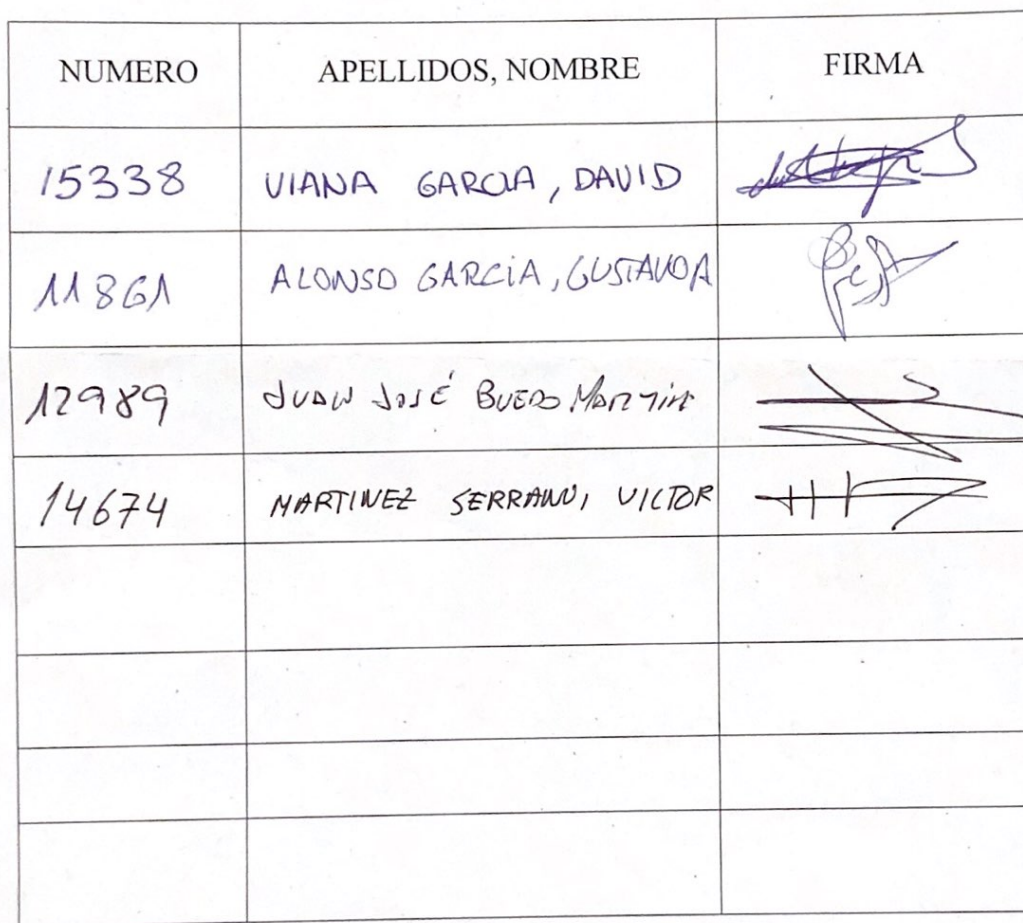 NUMERO APELLIDOS, NOMBRE FIRMA
15338 VIANA GARCIA, DAVID
11861 ALONSO GARCÍA, GUSTAVO A
12989 JUAN JOSÉ BUERO MARTIN
14674 MARTINEZ SERRANO, VICTOR